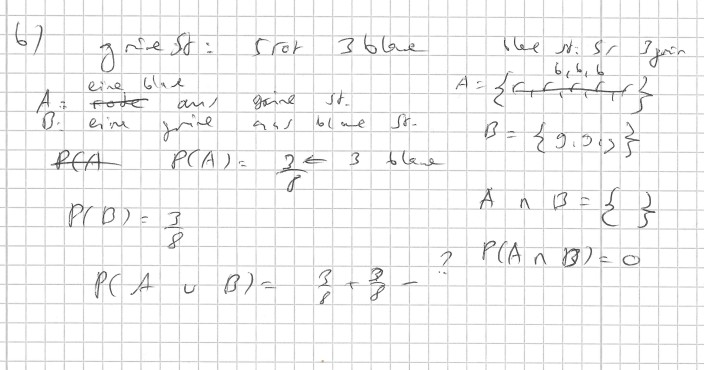 b) grüne St: 5 rot 3 blaue blaue St: 5r 3 grün
A: eine blaue rote aus grüne St.
A = { r, r, r, r, r b, b, b }
B: eine grüne aus blaue St.
B = { g, g, g }
P(A P(A) = 3/8 ← 3 blaue
A ∩ B = { }
P(B) = 3/8
P(A ∩ B) = 0
P( A ∪ B) = 3/8 + 3/8 - ?